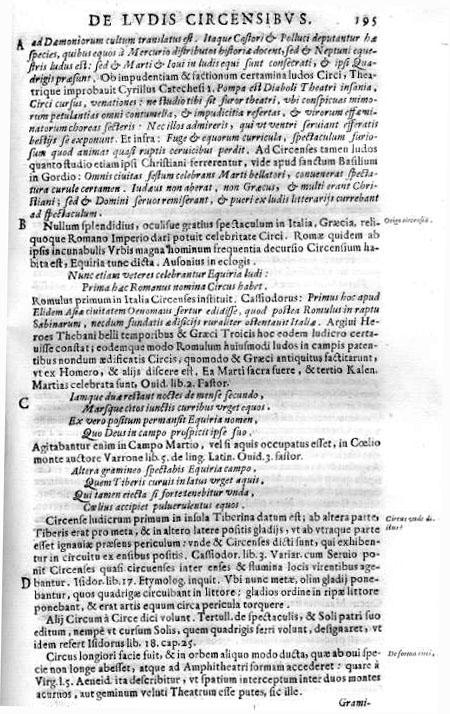 DE LVDIS CIRCENSIBVS. 195
A ad Dæmoniorum cultum translatus est. Itaque Castori & Polluci deputantur hæ
species, quibus equos à Mercurio distributos historiæ docent, sed & Neptuni eque-
stris ludus est: sed & Marti & Ioui in ludis equi sunt consecrati, & ipsi Qua-
drigis præsunt. Ob impudentiam & factionum certamina ludos Circi, Thea-
trique improbauit Cyrillus Catechesi 1. Pompa est Diaboli Theatri insania,
Circi cursus, venationes: ne studio tibi sit furor theatri, vbi conspicuas mimo-
rum petulantias omni contumelia, & impudicitia refertas, & virorum effæmi-
natorum choreas fecteris: Nec illos admireris, qui vt ventri seruiant efferatis
bestijs se exponunt. Et infra: Fuge & equorum curricula, spectaculum furio-
sum quod animat quasi ruptis ceruicibus perdit. Ad Circenses tamen ludos
quanto studio etiam ipsi Christiani ferrerentur, vide apud sanctum Basilium
in Gordio: Omnis ciuitas festum celebrans Marti bellatori, conuenerat specta-
tura curule certamen. Iudæus non aberat, non Græcus, & multi erant Chri-
stiani; sed & Domini seruos remiserant, & pueri ex ludis litterarijs currebant
ad spectaculum.
B Nullum splendidius, oculisue gratius spectaculum in Italia, Græcia, reli-
Origo circensiũ.
quoque Romano Imperio dari potuit celebritate Circi. Romæ quidem ab
ipsis incunabulis Vrbis magna hominum frequentia decursio Circensium ha-
bita est, Equiria tunc dicta. Ausonius in eclogis.
Nunc etiam veteres celebrantur Equiria ludi:
Prima hæc Romanus nomina Circus habet.
Romulus primum in Italia Circenses instituit. Cassiodorus: Primus hoc apud
Elidem Asiæ ciuitatem Oenomaus fertur edidisse, quod postea Romulus in raptu
Sabinarum, necdum fundatis ædificijs ruraliter ostentauit Italiæ. Argiui He-
roes Thebani belli temporibus & Græci Troicis hoc eodem ludicro certa-
uisse constat; eodemque modo Romulum huiusmodi ludos in campis paten-
tibus nondum ædificatis Circis; quomodo & Græci antiquitus factitarunt,
vt ex Homero, & alijs discere est. Ea Marti sacra fuere, & tertio Kalen.
Martias celebrata sunt, Ouid. lib. 2. Fastor.
Iamque duæ restant noctes de mense secundo,
C Marsque citos iunctis curribus vrget equos.
Ex vero positum permansit Equiria nomen,
Quo Deus in campo prospicit ipse suo.
Agitabantur enim in Campo Martio, vel si aquis occupatus esset, in Cœlio
monte auctore Varrone lib. 5. de ling. Latin. Ouid. 3. fastor.
Altera gramineo spectabis Equiria campo,
Quem Tiberis curuis in latus vrget aquis,
Qui tamen eiecta si forte tenebitur vnda,
Cælius accipiet puluerulentus equos.
Circense ludicrum primum in insula Tiberina datum est; ab altera parte
Circus vnde di-
Tiberis erat pro meta, & in altero latere positis gladijs, vt ab vtraque parte
esset ignauiæ præsens periculum: vnde & Circenses dicti sunt, qui exhiben-
tur in circuitu ex ensibus positis. Cassiodor. lib. 3. Variar. cum Seruio po-
nit Circenses quasi circuenses inter enses & flumina locis virentibus age-
D bantur. Isidor. lib. 17. Etymolog. inquit. Vbi nunc metæ, olim gladij pone-
bantur, quos quadrigæ circuibant in littore: gladios ordine in ripæ littore
ponebant, & erat artis equum circa pericula torquere.
Alij Circum à Circe dici volunt. Tertull. de spectaculis, & Soli patri suo
editum, nempè vt cursum Solis, quem quadrigis ferri volunt, designaret, vt
idem refert Isidorus lib. 18. cap. 25.
Circus longiori facie fuit, & in orbem aliquo modo ducta, quæ ab oui spe-
De forma circi,
cie non longe abesset, atque ad Amphitheatri formam accederet: quare à
Virg. l. 5. Aeneid. ita describitur, vt spatium interceptum inter duos montes
acuruos, aut geminum veluti Theatrum esse putes, sic ille.
Grami-